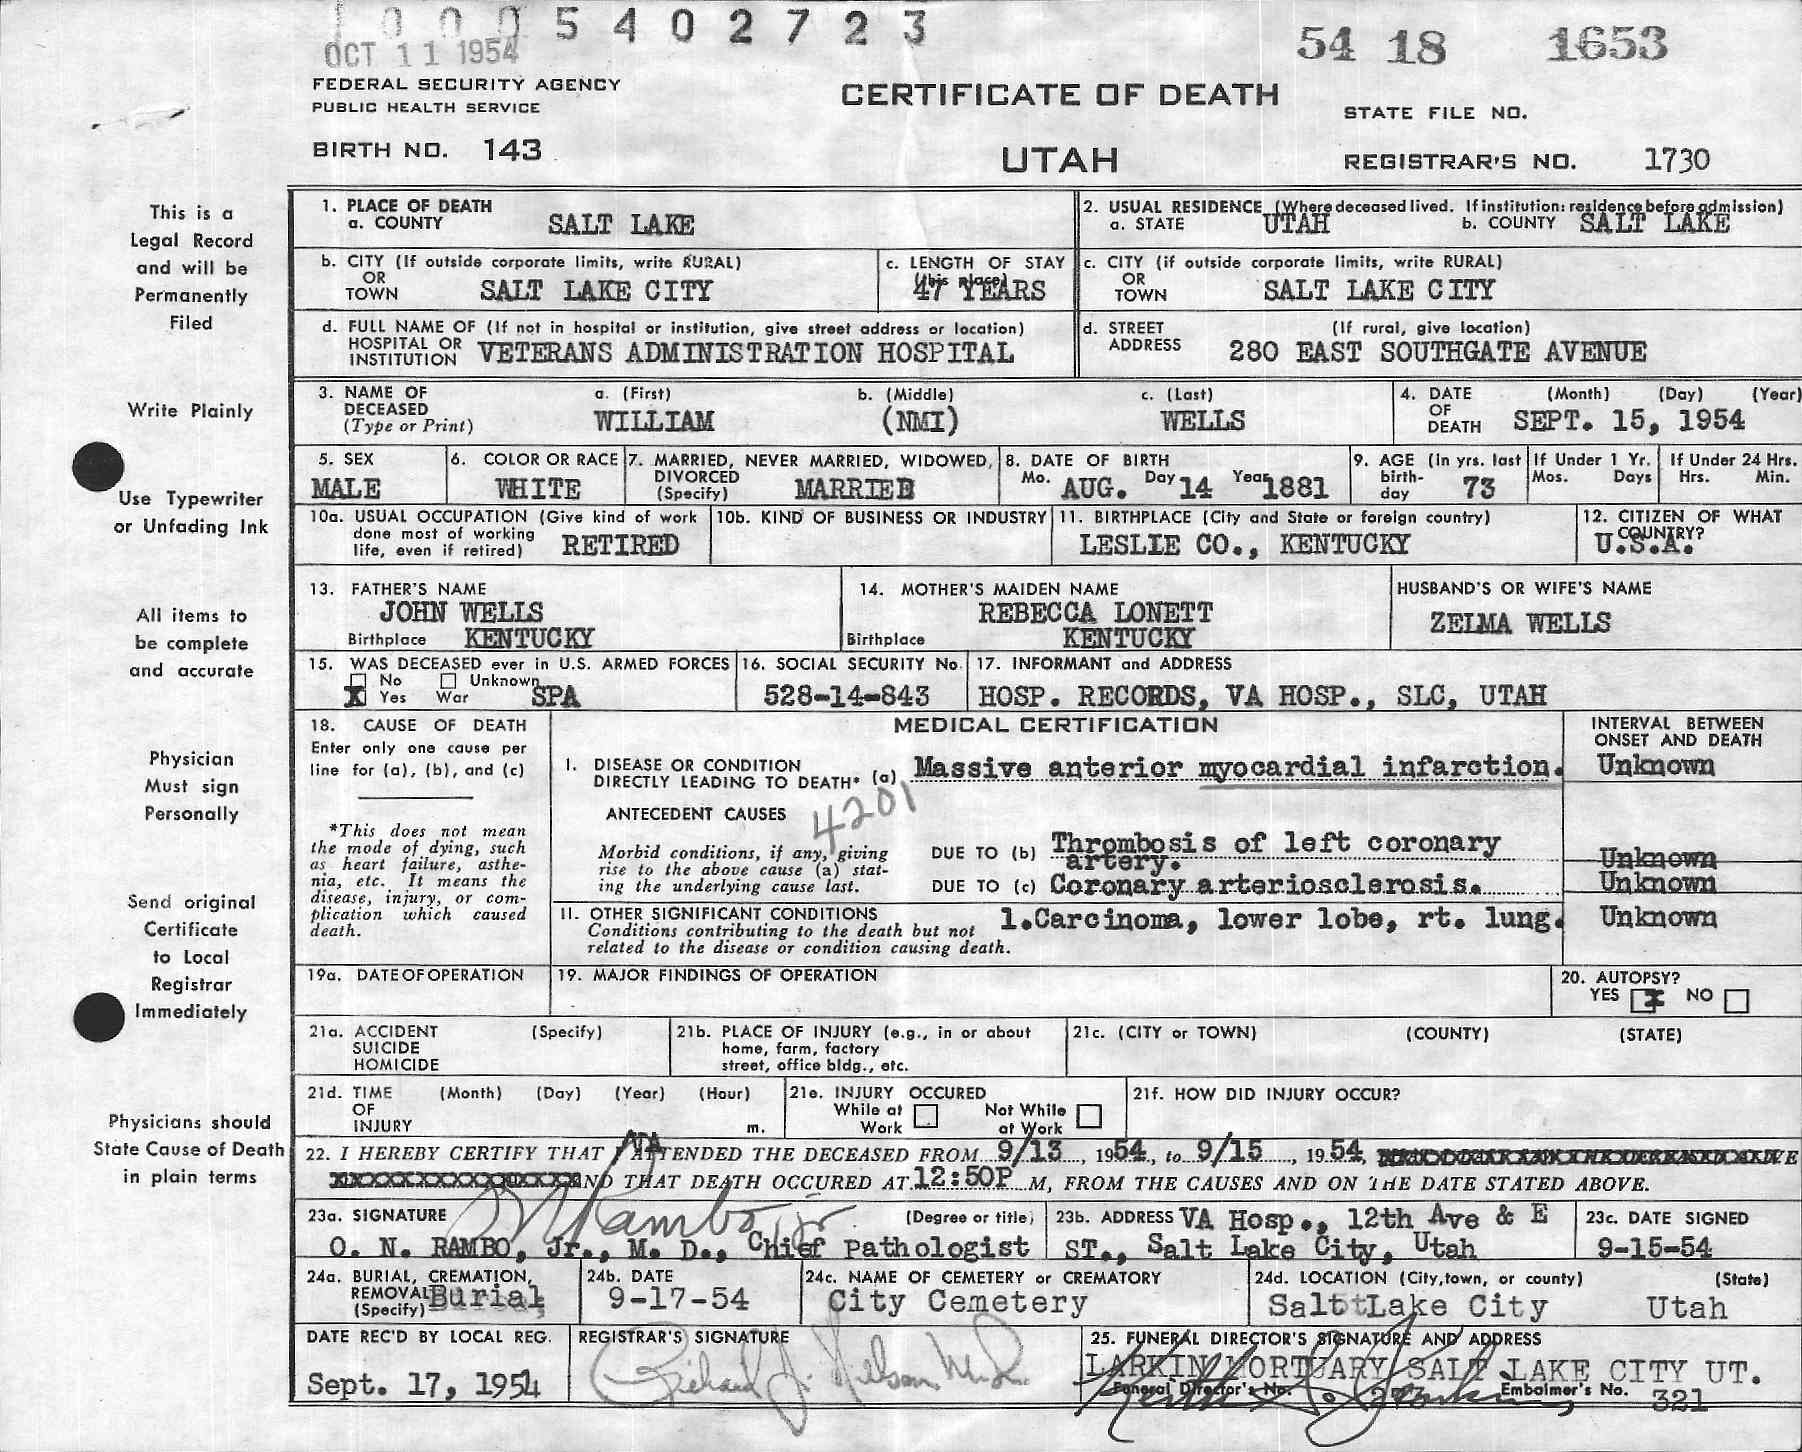 1 0 0 0 5 4 0 2 7 2 3
OCT 11 1954
54 18 1653
FEDERAL SECURITY AGENCY
PUBLIC HEALTH SERVICE
CERTIFICATE OF DEATH
STATE FILE NO.
BIRTH NO. 143
UTAH
REGISTRAR'S NO. 1730
This is a
Legal Record
and will be
Permanently
Filed
Write Plainly
Use Typewriter
or Unfading Ink
All items to
be complete
and accurate
Physician
Must sign
Personally
Send original
Certificate
to Local
Registrar
Immediately
Physicians should
State Cause of Death
in plain terms
1. PLACE OF DEATH
a. COUNTY SALT LAKE
2. USUAL RESIDENCE (Where deceased lived. If institution: residence before admission)
a. STATE UTAH b. COUNTY SALT LAKE
b. CITY (If outside corporate limits, write RURAL)
OR
TOWN SALT LAKE CITY
c. LENGTH OF STAY
(this place)
47 YEARS
c. CITY (if outside corporate limits, write RURAL)
OR
TOWN SALT LAKE CITY
d. FULL NAME OF (If not in hospital or institution, give street address or location)
HOSPITAL OR
INSTITUTION VETERANS ADMINISTRATION HOSPITAL
d. STREET (If rural, give location)
ADDRESS 280 EAST SOUTHGATE AVENUE
3. NAME OF
DECEASED
(Type or Print)
a. (First) b. (Middle) c. (Last)
WILLIAM (NMI) WELLS
4. DATE (Month) (Day) (Year)
OF
DEATH SEPT. 15, 1954
5. SEX
MALE
6. COLOR OR RACE
WHITE
7. MARRIED, NEVER MARRIED, WIDOWED,
DIVORCED
(Specify) MARRIED
8. DATE OF BIRTH
Mo. AUG. Day 14 Year 1881
9. AGE (In yrs. last
birth-
day 73
If Under 1 Yr.
Mos. Days
If Under 24 Hrs.
Hrs. Min.
10a. USUAL OCCUPATION (Give kind of work
done most of working
life, even if retired) RETIRED
10b. KIND OF BUSINESS OR INDUSTRY
11. BIRTHPLACE (City and State or foreign country)
LESLIE CO., KENTUCKY
12. CITIZEN OF WHAT
COUNTRY?
U.S.A.
13. FATHER'S NAME
JOHN WELLS
Birthplace KENTUCKY
14. MOTHER'S MAIDEN NAME
REBECCA LONETT
Birthplace KENTUCKY
HUSBAND'S OR WIFE'S NAME
ZELMA WELLS
15. WAS DECEASED ever in U.S. ARMED FORCES
No Unknown
X Yes War SPA
16. SOCIAL SECURITY No.
528-14-843
17. INFORMANT and ADDRESS
HOSP. RECORDS, VA HOSP., SLC, UTAH
18. CAUSE OF DEATH
Enter only one cause per
line for (a), (b), and (c)
*This does not mean
the mode of dying, such
as heart failure, asthe-
nia, etc. It means the
disease, injury, or com-
plication which caused
death.
MEDICAL CERTIFICATION
INTERVAL BETWEEN
ONSET AND DEATH
I. DISEASE OR CONDITION
DIRECTLY LEADING TO DEATH* (a) Massive anterior myocardial infarction. Unknown
4201
ANTECEDENT CAUSES
Morbid conditions, if any, giving
rise to the above cause (a) stat-
ing the underlying cause last.
DUE TO (b) Thrombosis of left coronary
artery. Unknown
DUE TO (c) Coronary arteriosclerosis. Unknown
II. OTHER SIGNIFICANT CONDITIONS
Conditions contributing to the death but not
related to the disease or condition causing death.
1.Carcinoma, lower lobe, rt. lung. Unknown
19a. DATE OF OPERATION
19. MAJOR FINDINGS OF OPERATION
20. AUTOPSY?
YES X NO
21a. ACCIDENT (Specify)
SUICIDE
HOMICIDE
21b. PLACE OF INJURY (e.g., in or about
home, farm, factory
street, office bldg., etc.
21c. (CITY or TOWN) (COUNTY) (STATE)
21d. TIME (Month) (Day) (Year) (Hour)
OF
INJURY m.
21e. INJURY OCCURED
While at
Work
Not While
at Work
21f. HOW DID INJURY OCCUR?
22. I HEREBY CERTIFY THAT VA ATTENDED THE DECEASED FROM 9/13, 1954, to 9/15, 1954,
AND THAT DEATH OCCURED AT 12:50P M, FROM THE CAUSES AND ON THE DATE STATED ABOVE.
23a. SIGNATURE ON Rambo, jr (Degree or title)
O. N. RAMBO, Jr., M. D., Chief Pathologist
23b. ADDRESS VA Hosp., 12th Ave & E
ST., Salt Lake City, Utah
23c. DATE SIGNED
9-15-54
24a. BURIAL, CREMATION,
REMOVAL
(Specify) Burial
24b. DATE
9-17-54
24c. NAME OF CEMETERY or CREMATORY
City Cemetery
24d. LOCATION (City, town, or county) (State)
Salt Lake City Utah
DATE REC'D BY LOCAL REG.
Sept. 17, 1954
REGISTRAR'S SIGNATURE
Richard J. Nelson M.D.
25. FUNERAL DIRECTOR'S SIGNATURE AND ADDRESS
LARKIN MORTUARY SALT LAKE CITY UT.
Funeral Director's No. 273 Embalmer's No. 321